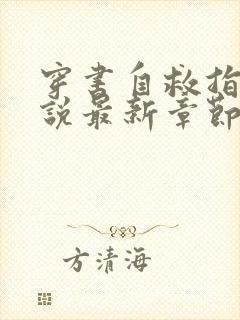 穿书自救指
說最新章節
方清海